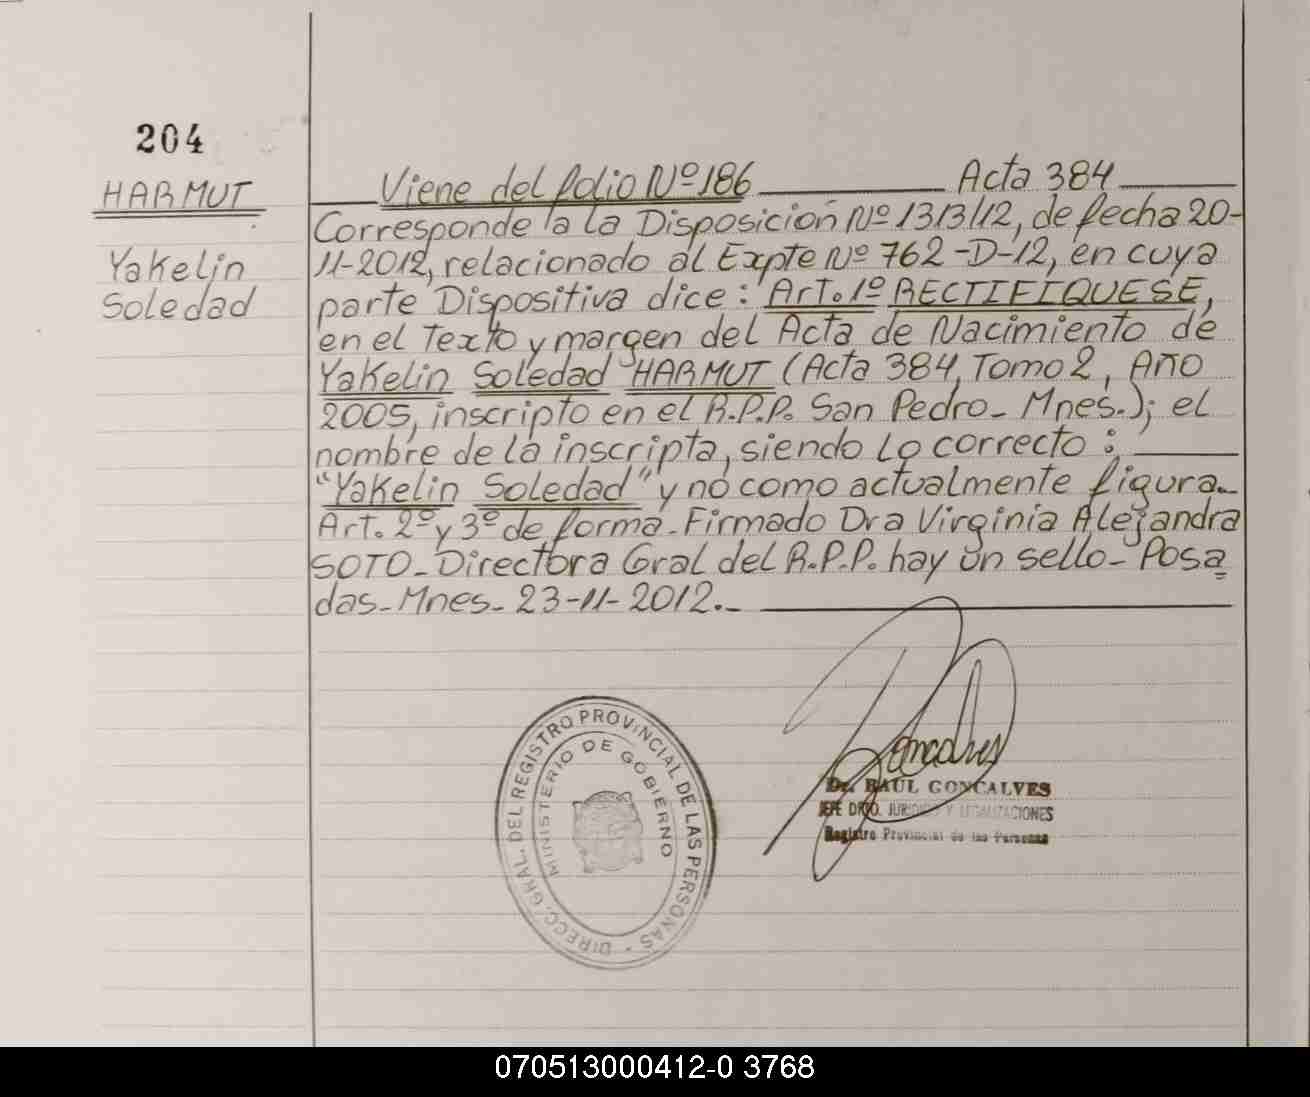 204
HARMUT
Yakelin
Soledad
Viene del folio Nº 186 Acta 384
Corresponde a la Disposición Nº 1313/12, de fecha 20-
11-2012, relacionado al Expte Nº 762-D-12, en cuya
parte Dispositiva dice: Art. 1º RECTIFIQUESE,
en el Texto y margen del Acta de Nacimiento de
Yakelin Soledad HARMUT (Acta 384, Tomo 2, Año
2005, inscripto en el R.P.P. San Pedro- Mnes.); el
nombre de la inscripta, siendo lo correcto:
"Yakelin Soledad" y no como actualmente figura.-
Art. 2º y 3º de forma- Firmado Dra Virginia Alejandra
SOTO- Directora Gral del R.P.P. hay un sello- Posa
das- Mnes- 23-11-2012.-
DIRECC. GRAL. DEL REGISTRO PROVINCIAL DE LAS PERSONAS -
MINISTERIO DE GOBIERNO
Goncalves
Dr. RAUL GONCALVES
JEFE DPTO. JURIDICO Y LEGALIZACIONES
Registro Provincial de las Personas
070513000412-0 3768